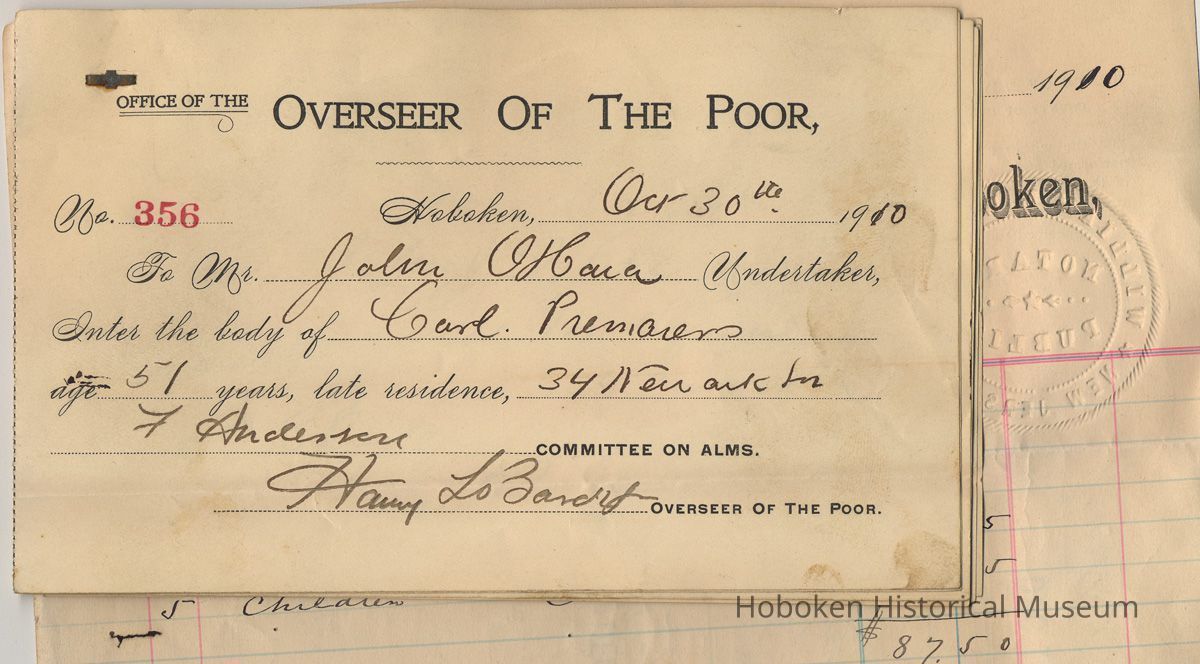 OFFICE OF THE OVERSEER OF THE POOR,
No. 356 Hoboken, Oct 30th 1910
To Mr. John O'Hara Undertaker,
Inter the body of Carl.
age 51 years, late residence, 34 Newark St
F Anderson COMMITTEE ON ALMS.
Harry OVERSEER OF THE POOR.
1910
oken,
NOTAR
PUBLI
NEW JERS
5
5
5 Children
$87.50
Hoboken Historical Museum